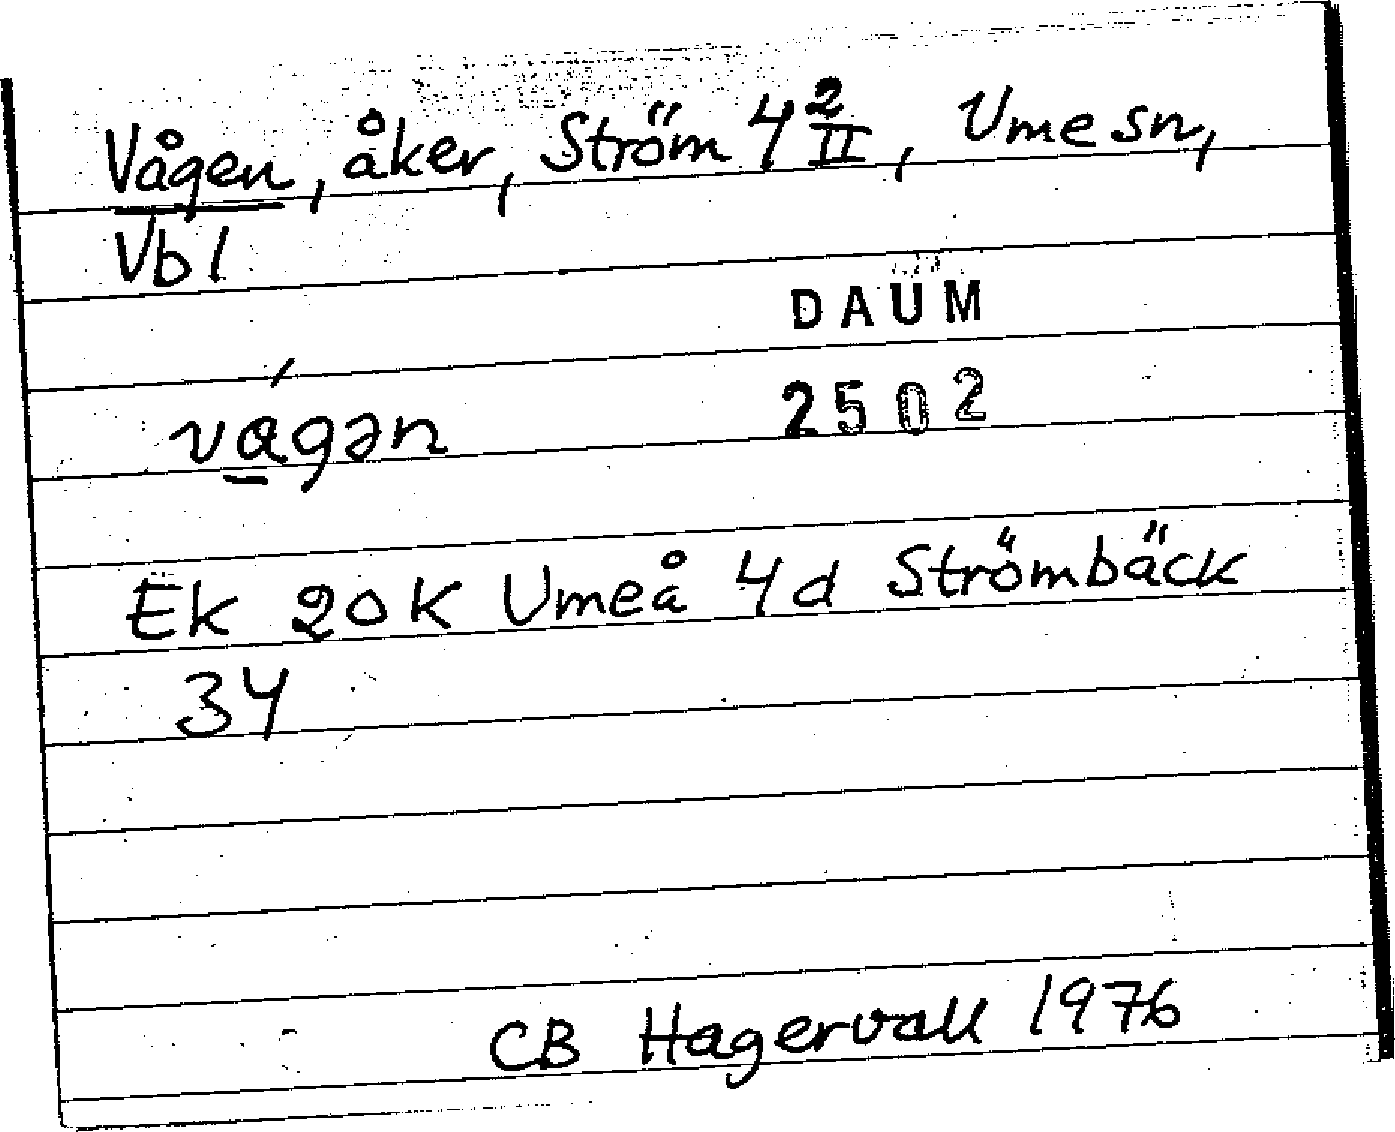 Vågen, åker, Ström 4 2/II, Umesn,
Vbl
DAUM
2502
vágən
Ek 20K Umeå 4d Strömbäck
34
CB Hagervall 1976